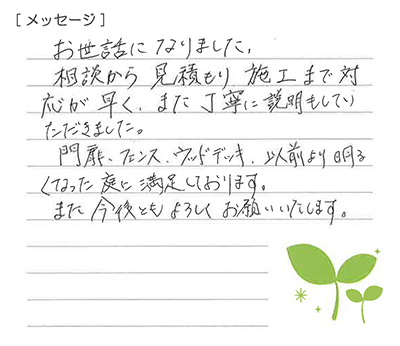 [メッセージ]
お世話になりました。
相談から見積もり施工まで対
応が早く、また丁寧に説明もしてい
ただきました。
門扉、フェンス、ウッドデッキ、以前より明る
くなった庭に満足しております。
また今後ともよろしくお願いいたします。